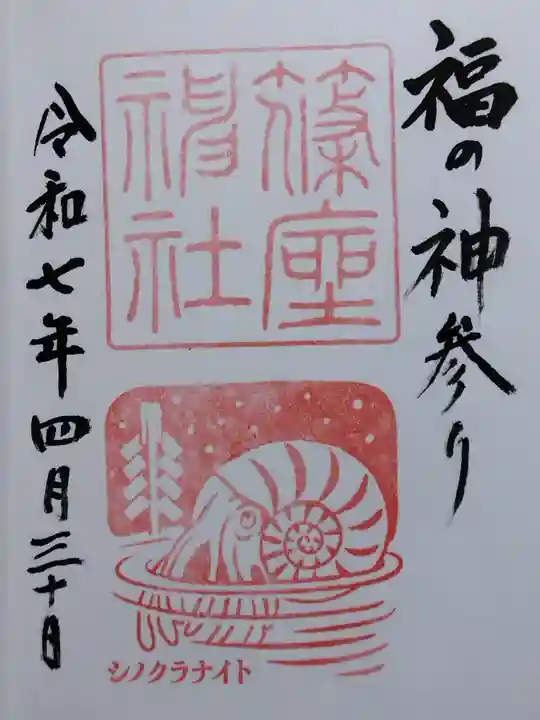 福の神参り
篠座
神社
シノクラナイト
令和七年四月三十日